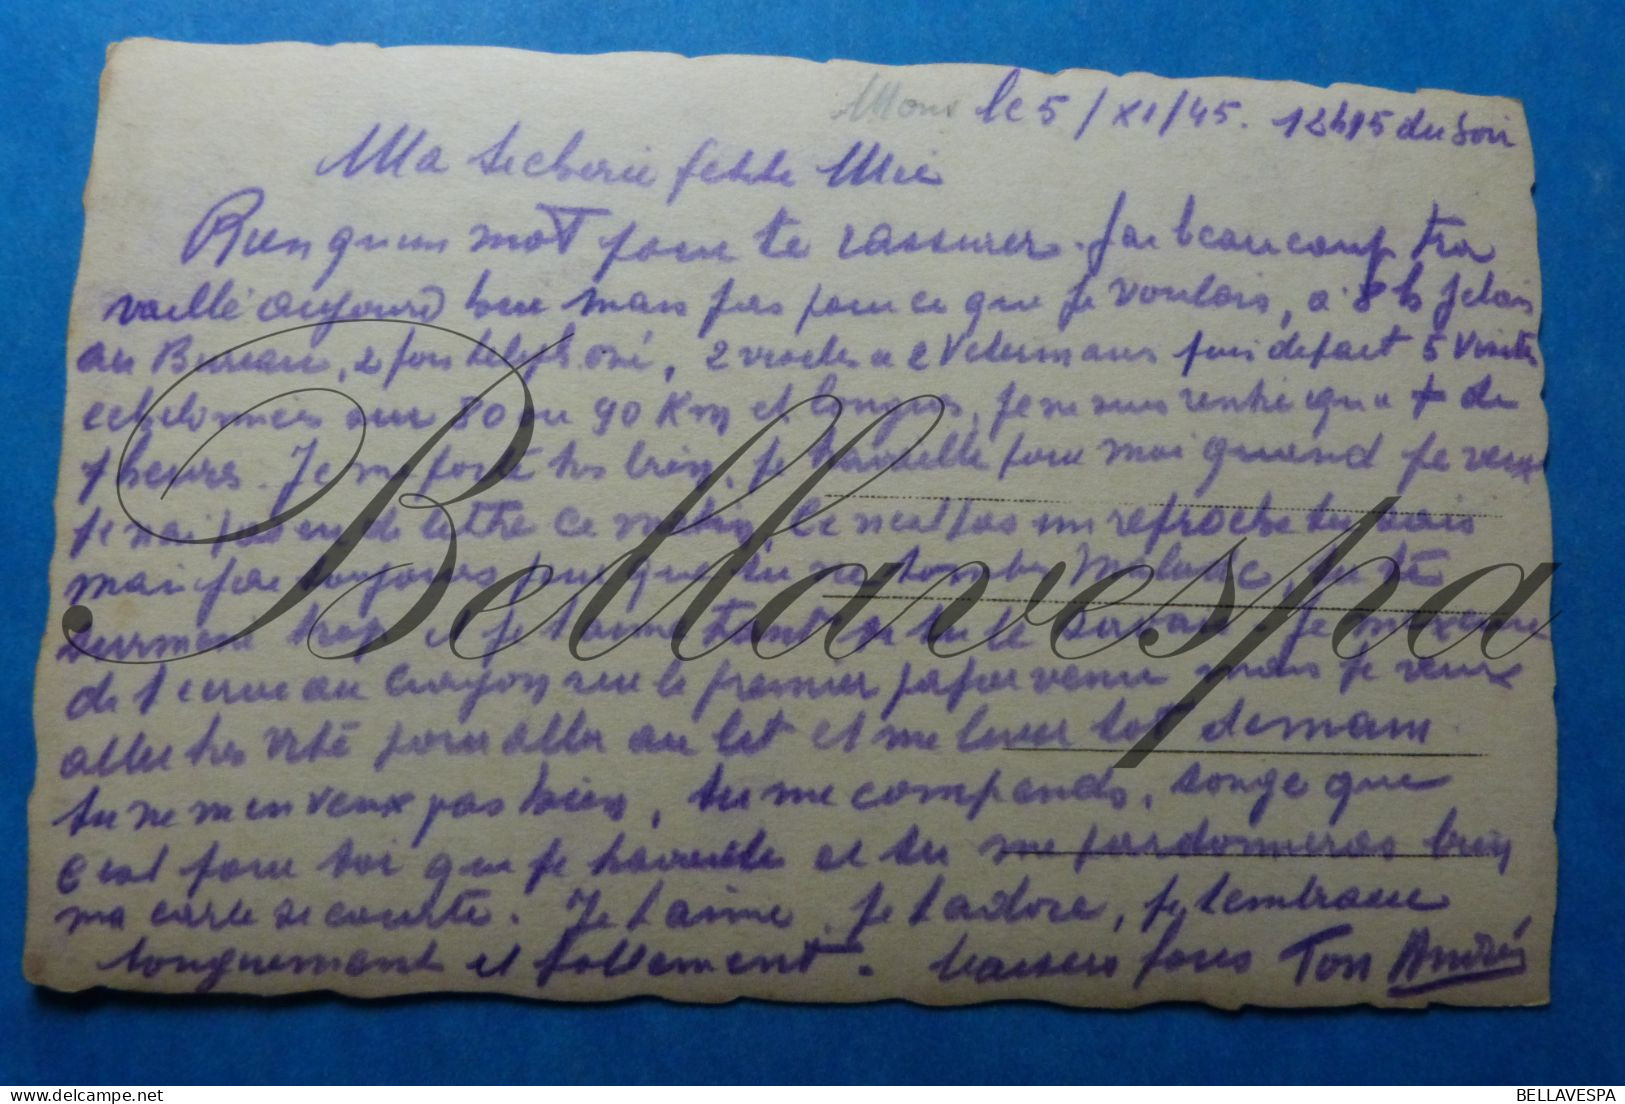 Mons le 5/XI/45. 12h15 du soir
Ma te cherie petite Mie
Rien qu'un mot pour te rassurer. J'ai beaucoup tra
vaillé aujourd hui mais pas pour ce que je voulais, a 8 h j'etais
au Bureau, 2 fois telephoné, 2 a 2 puis depart 5 visites
echelonnées sur 80 ou 90 Km et longues, je ne suis rentré qu a + de
7 heures. Je me porte tres bien, je travaille pour moi quand je veux
je n'ai pas eu de lettre ce matin, ce n'est pas un reproche tu sais
mais j'ai toujours peur que tu ne tombes Malade, tu te
surmene trop et je t'aime tant si tu le savais. Je m'excuse
de t ecrire au crayon sur le premier papier venu mais je veux
aller tres vite pour aller au lit et me lever tot demain.
tu ne m en veux pas bien, tu me comprends, songe que
c'est pour toi que je travaille et tu me pardonneras bien
ma carte si courte. Je t aime, je t adore, je t embrasse
longuement et follement. baisers fous Ton André
Bellavespa
BELLAVESPA